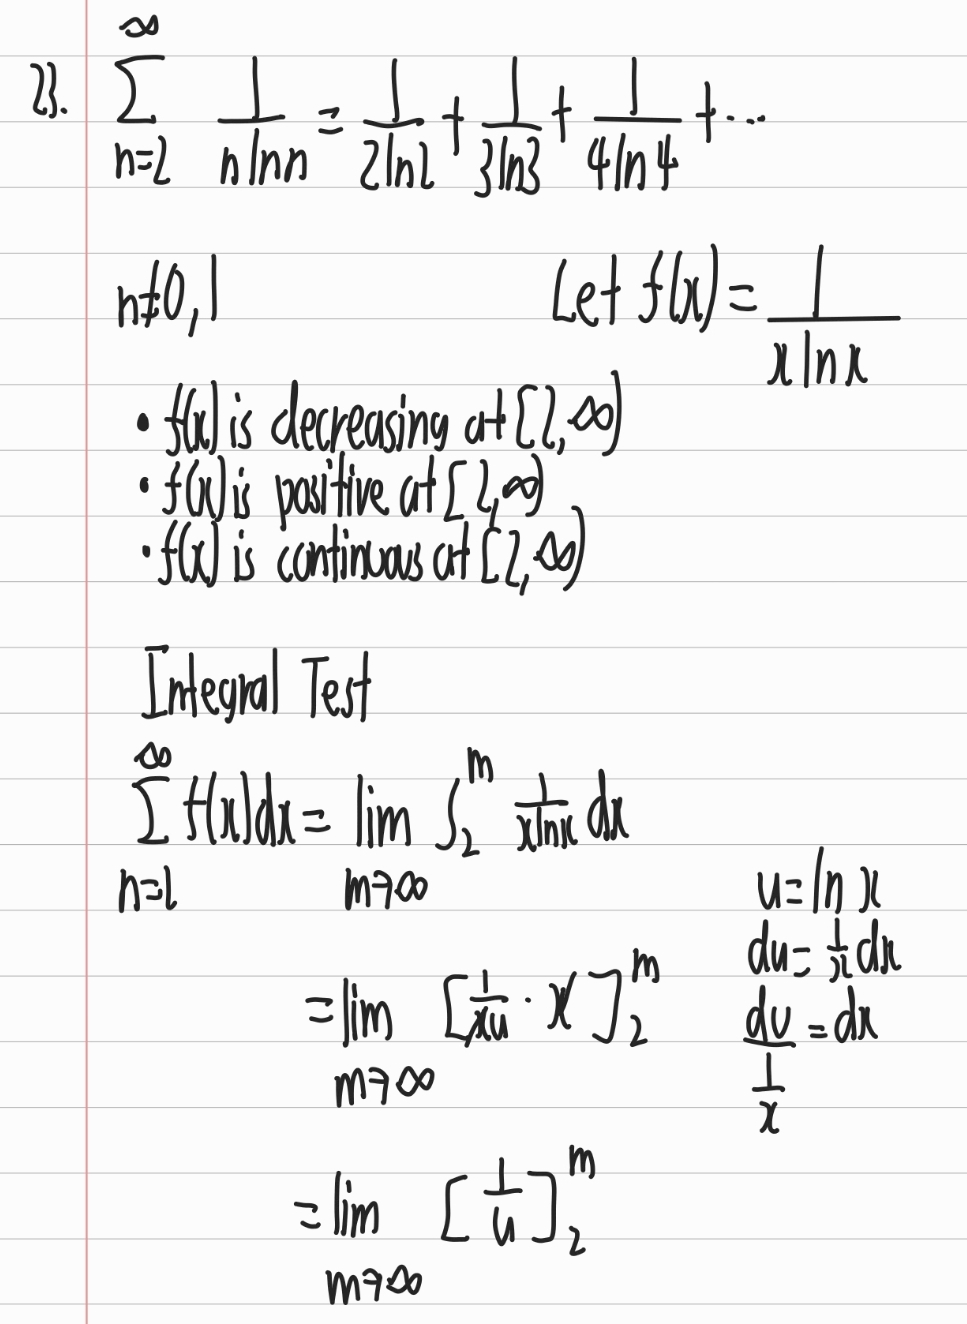 23. ∞∑n=2 1/(n ln n) = 1/(2 ln 2) + 1/(3 ln 3) + 1/(4 ln 4) + ...
n≠0, 1 Let f(x) = 1/(x ln x)
• f(x) is decreasing at [2, ∞)
• f(x) is positive at [2, ∞)
• f(x) is continuous at [2, ∞)
Integral Test
∞∑n=2 f(x)dx = lim m→∞ ∫₂ᵐ 1/(x ln x) dx
u = ln x
du = 1/x dx
= lim m→∞ [1/(xu) · x]₂ᵐ
du/(1/x) = dx
= lim m→∞ [1/u]₂ᵐ